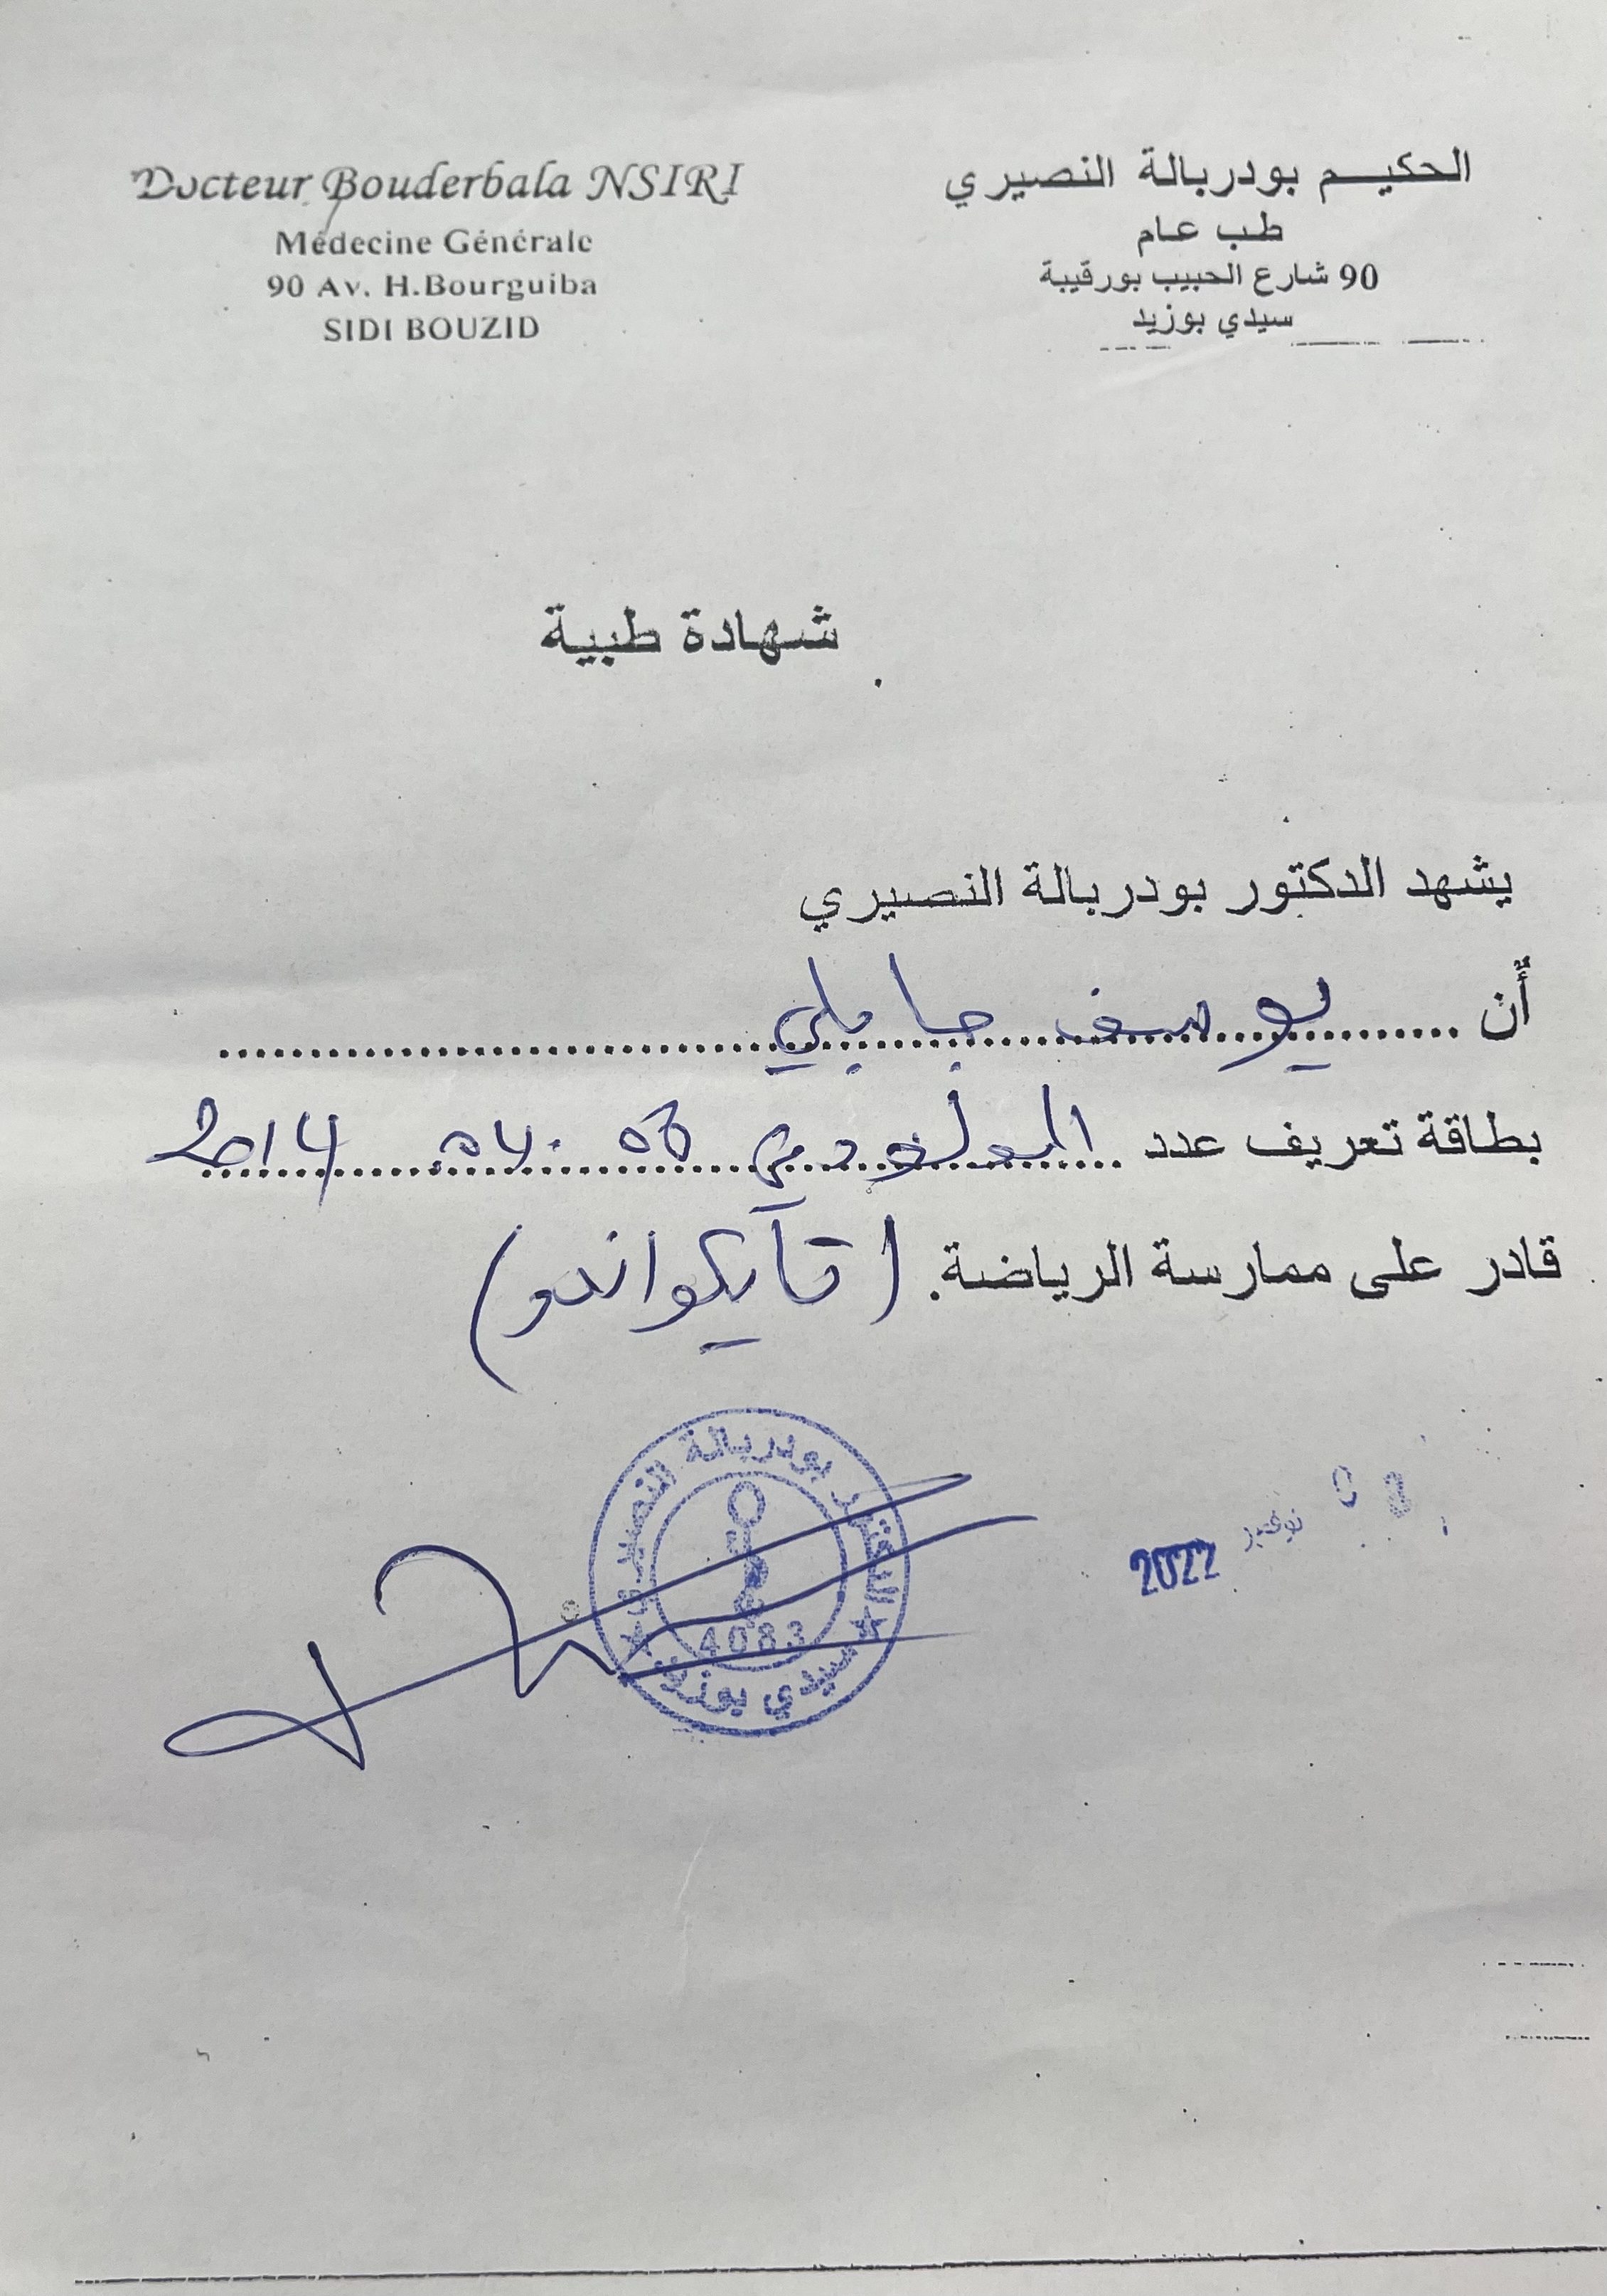 Docteur Bouderbala NSIRI
Médecine Générale
90 Av. H.Bourguiba
SIDI BOUZID
الحكيم بودربالة النصيري
طب عام
90 شارع الحبيب بورقيبة
سيدي بوزيد
شهادة طبية
يشهد الدكتور بودربالة النصيري
أن يوسف جابلي
بطاقة تعريف عدد المولود في 2014
قادر على ممارسة الرياضة. (تايكواندو)
08 نوفمبر 2022
الدكتور بودربالة النصيري
4083
سيدي بوزيد